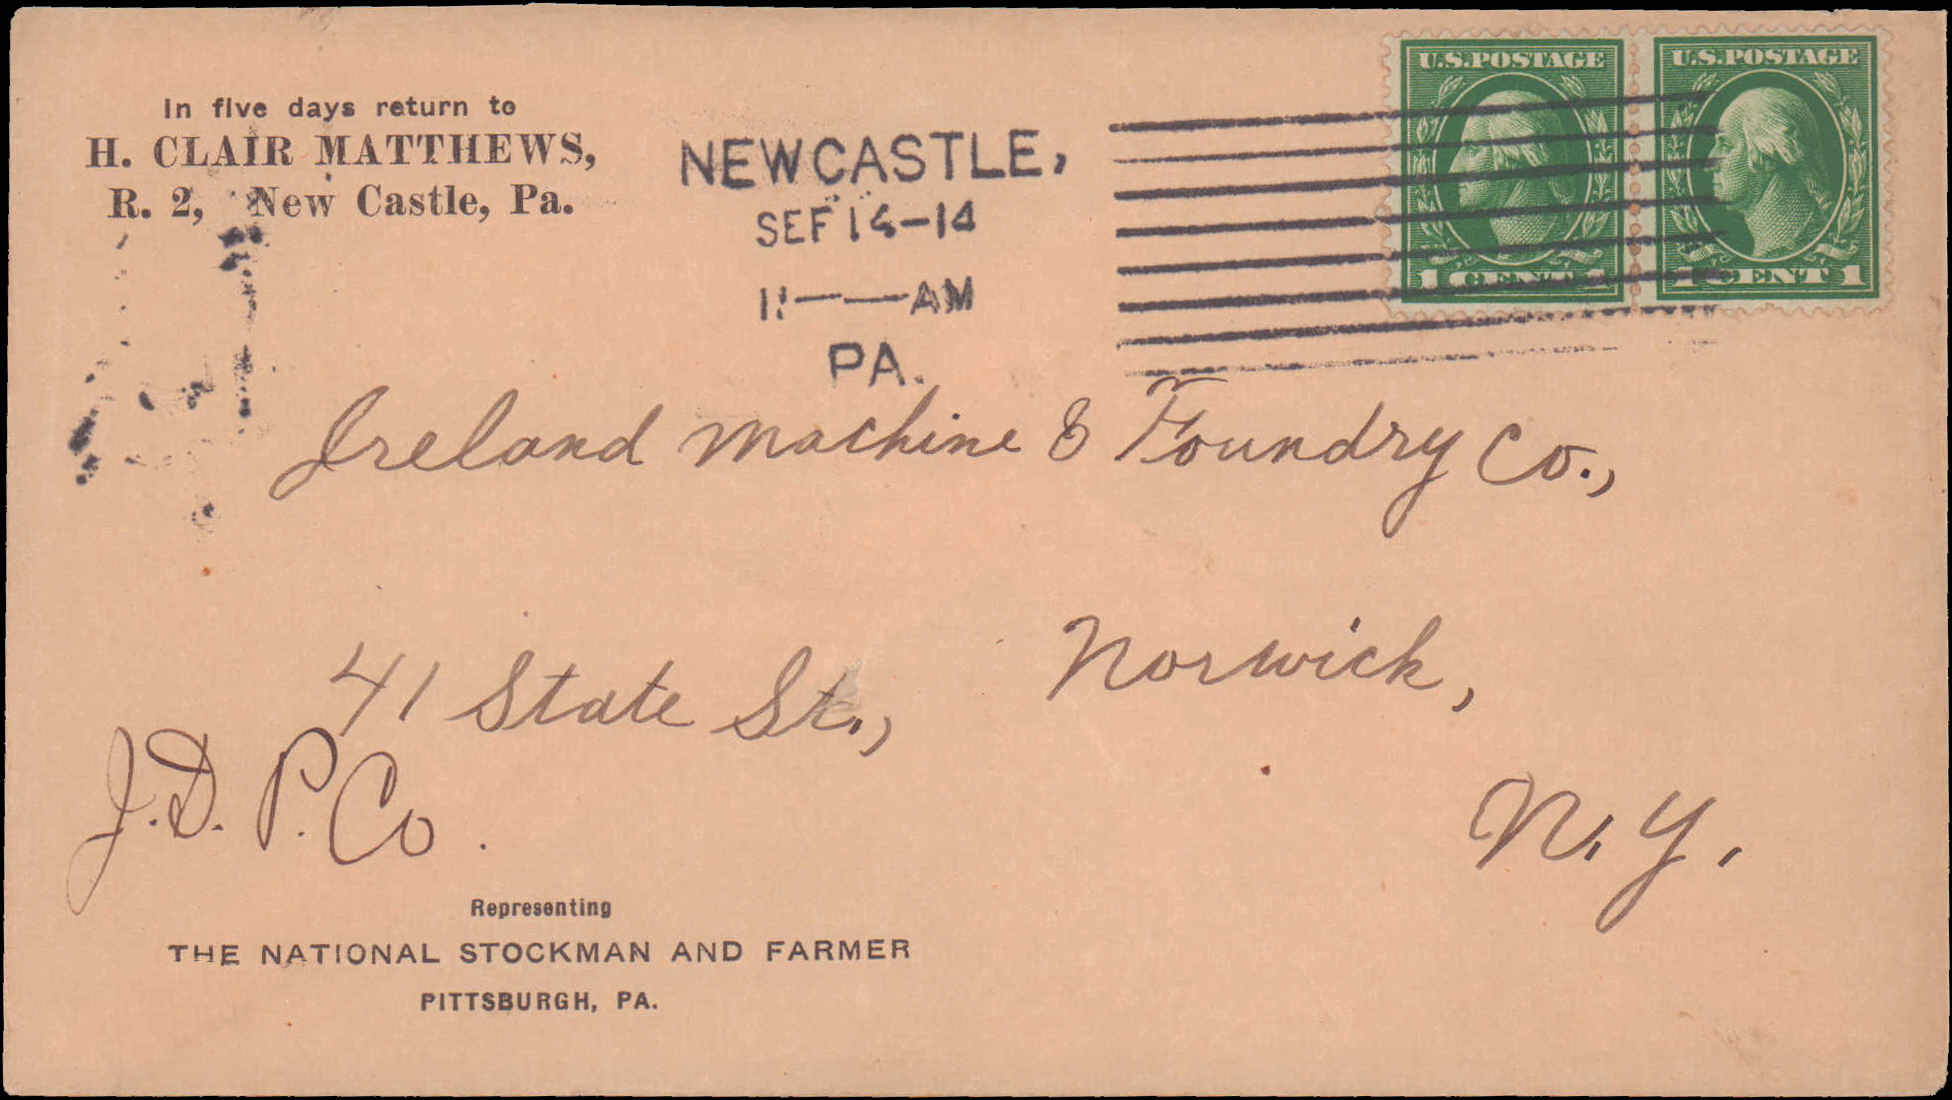 In five days return to
H. CLAIR MATTHEWS,
R. 2, New Castle, Pa.
NEWCASTLE,
SEP 14-14
11 — — AM
PA.
U.S. POSTAGE
1 CENT 1
U.S. POSTAGE
1 CENT 1
Ireland Machine & Foundry Co.,
41 State St., Norwick,
N.Y.
J.D. P. Co.
Representing
THE NATIONAL STOCKMAN AND FARMER
PITTSBURGH, PA.